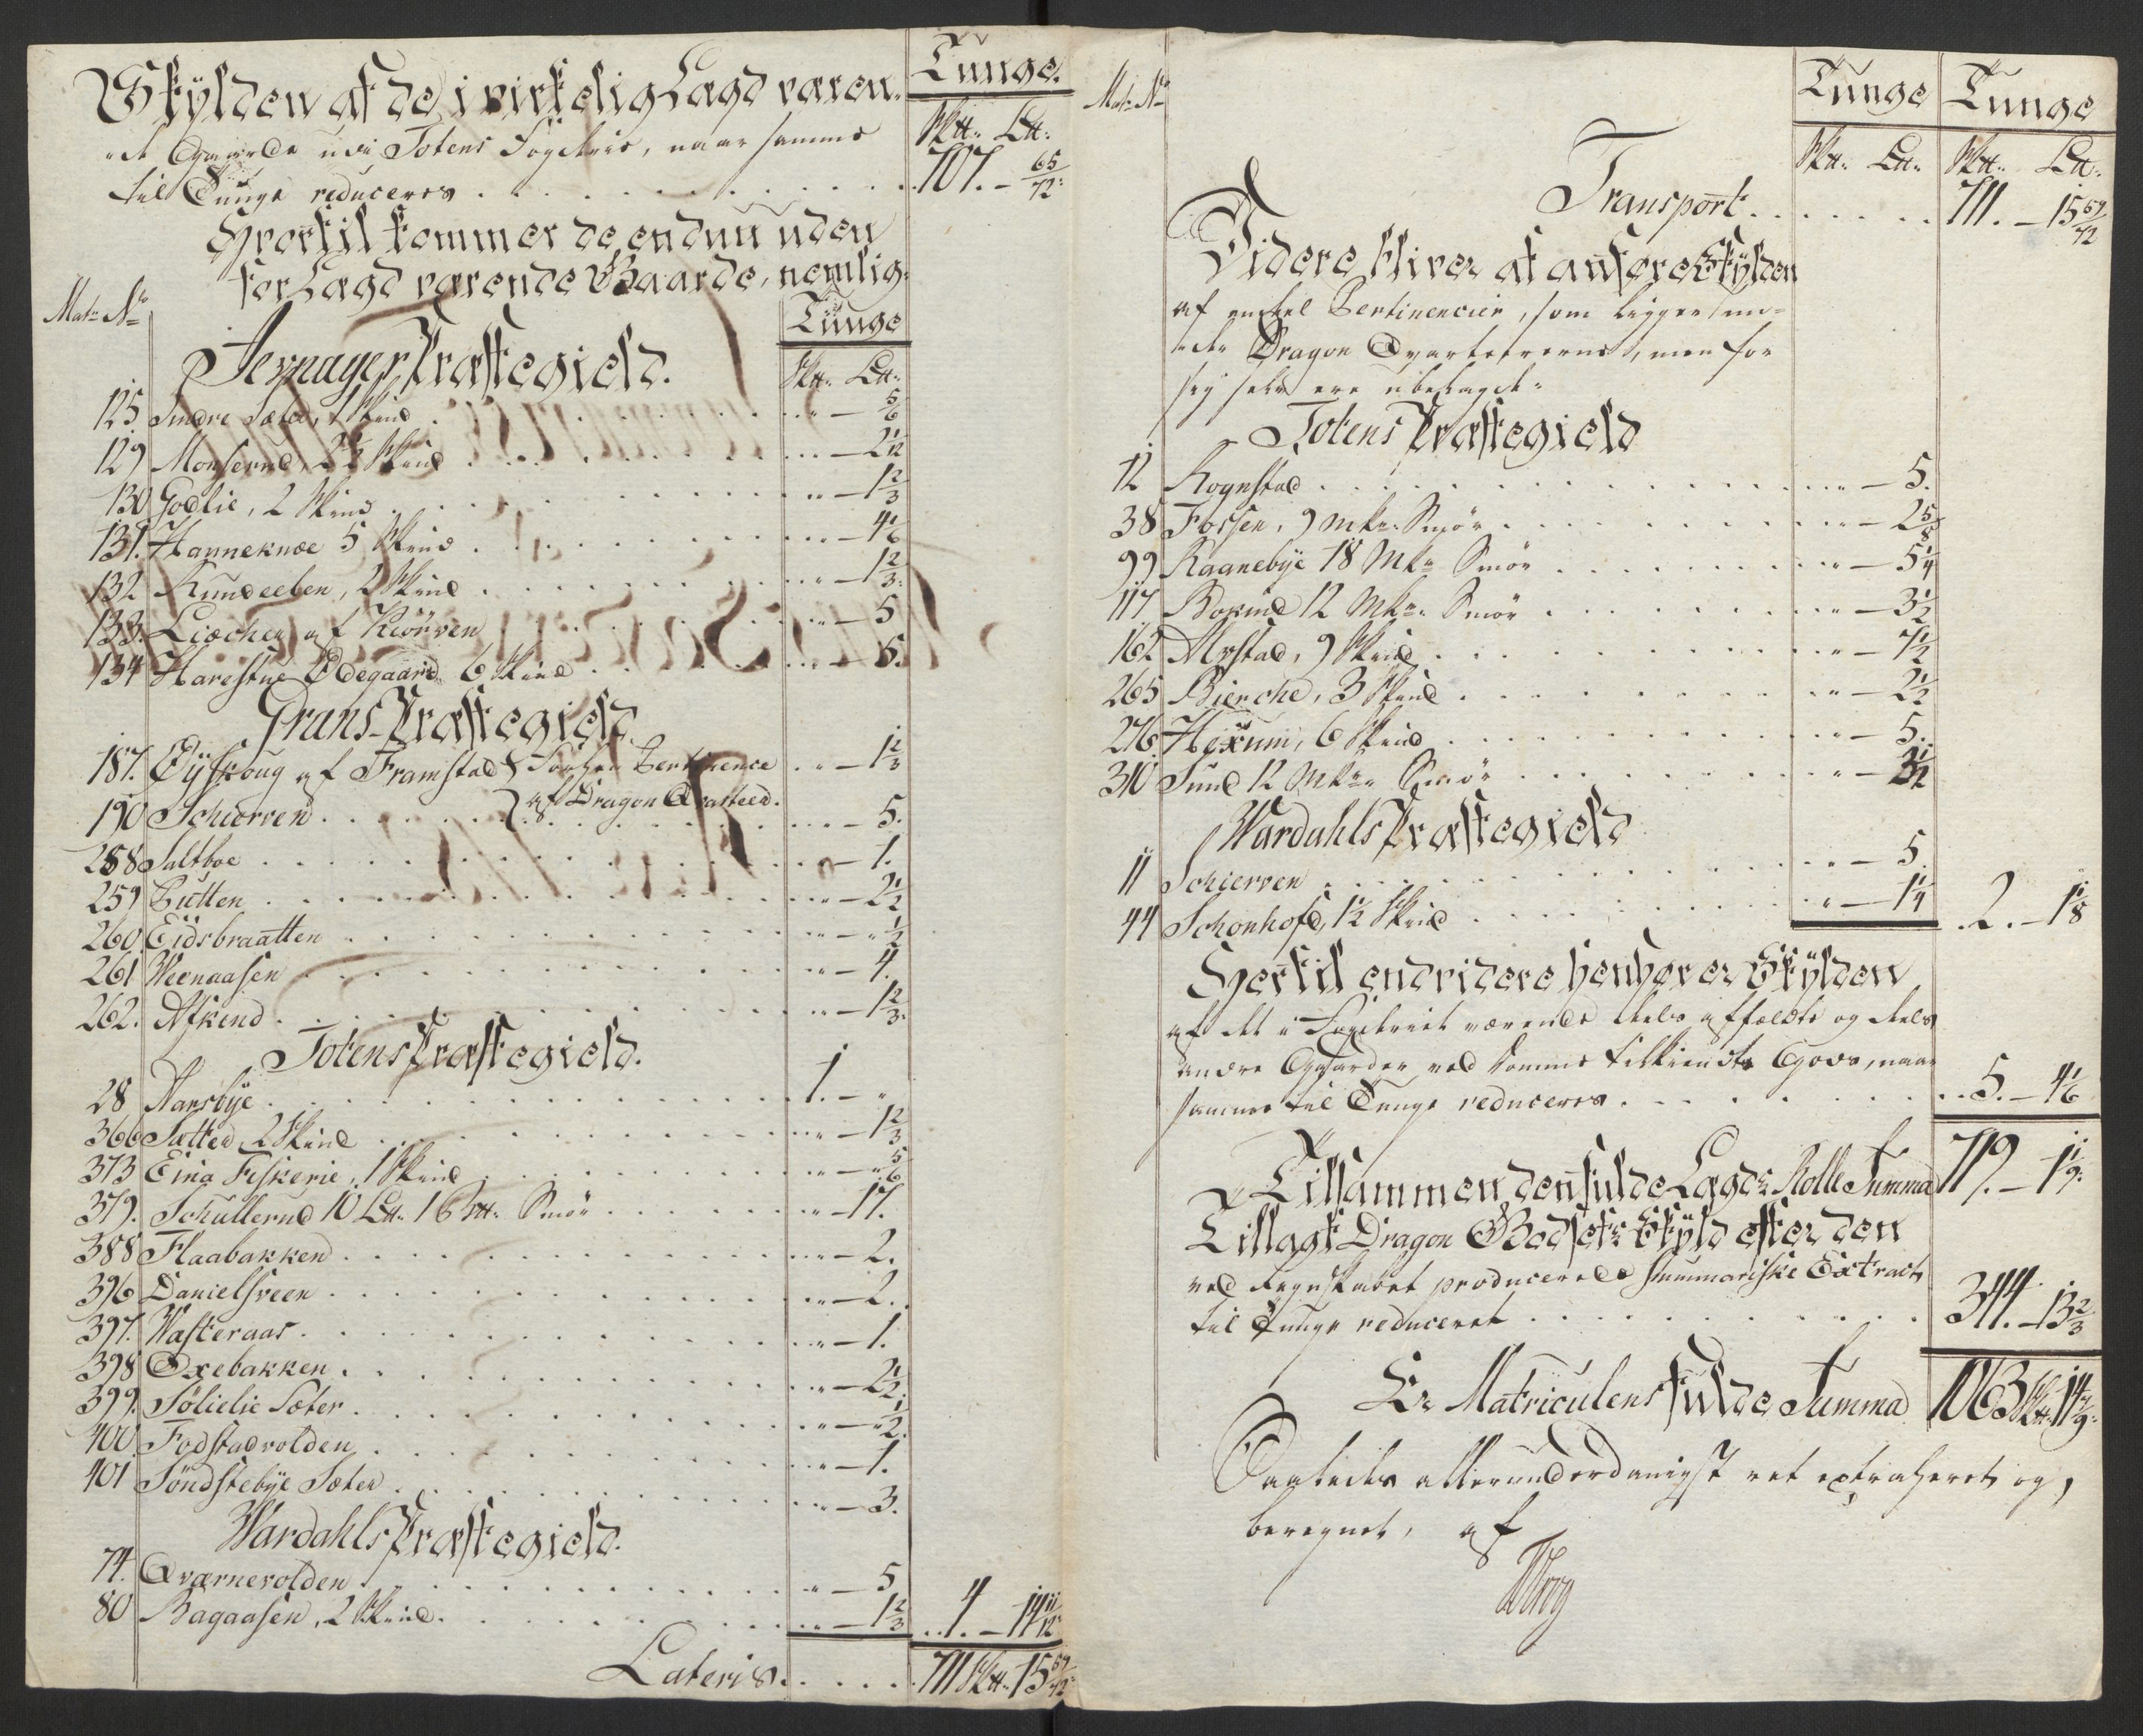 Skylden af de i virkelig Lægd væren-
de Gaarde udi Totens Fogderie, naar samme
til Tunge reduceres . . . 707. - 65/72
Tunge.
Sk℔. L℔.
Hvortil kommer de endnu uden
for Lægd værende Gaarde, nemlig:
Mat: No
Tunge
Sk℔. L℔.
Jevnager Præstegield.
125. Sindre Sæter, 1 Skind . . . " - 5/6
129 Monserud, 2 1/2 Skind . . . " - 2 1/12
130 Godlie, 2 Skind . . . " - 1 2/3
131. Hanneknæe 5 Skind . . . " - 4 1/6
132 Rundeeben, 2 Skind . . . " - 1 2/3
133. Liæchen af Kiörven . . . " - 5
134 Harestue Ødegaard 6 Skind . . . " - 5.
Grans Præstegield.
187. Øÿskoug af Framstad . . . " - 1 2/3
af Dragon Qvarteer.
190 Schiørren . . . " - 5.
258 Saltboe . . . " - 1.
259 Putten . . . " - 2 1/2
260. Eidsbraatten . . . " - " 1/2
261 Weenaasen . . . " - 4.
262. Afkind . . . " - 1 2/3
Totens Præstegield.
28 Hansbÿe . . . 1. - "
366 Sætter, 2 Skind . . . " - 1 2/3
373 Eina Fiskerie, 1 Skind . . . " - " 5/6
379. Schullerud 10 L℔. 16 m℔. Smör . . . " - 17.
388 Flaabakken . . . " - 2.
396 Danielsveen . . . " - 2.
397. Wasteraas . . . " - 1.
398 Oxebakken . . . " - 2 1/2
399. Sölielie Sæter . . . " - " 1/2
400. Fodstadvolden . . . " - 1.
401 Söndstebÿe Sæter . . . " - 3.
Wardahls Præstegield.
74. Qværnevolden . . . " - 5
80 Bagaasen, 2 Skind . . . " - 1 2/3 4. - 14 11/12
Lateris . . . 711 Sk℔. 15 59/72
Mat: No
Tunge Tunge
Sk℔. L℔. Sk℔. L℔.
Transport . . . 711. - 15 59/72
Videre bliver at anføre Skylden
af endeel Pertinencier, som ligger un-
der Dragon Qvarteererne, men for
sig selv ere ubelagde.
Totens Præstegield
12 Rognstad . . . " - 5.
38 Fossen, 9 mkr. Smör . . . " - 2 5/8
99 Raanebÿe 18 Mkr Smör . . . " - 5 1/4
117 Borind 12 Mkr. Smör . . . " - 3 1/2
162 Alvstad, 9 Skind . . . " - 7 1/2
265 Bierche, 3 Skind . . . " - 2 1/2
276. Hexum, 6 Skind . . . " - 5.
310 Sund 12 Mkr Smör . . . " - 3 1/2
Wardahls Præstegield
11 Schierven . . . " - 5.
44 Schonhofd, 1 1/2 Skind . . . " - 1 1/4 2. - 1 1/8
Hertil endvidere henhører Skylden
af det i Fogderiet værende deels affældte og deels
andre Gaarder ved Domme tilkiendte Gods, naar
samme til Tunge reduceres . . . 5. - 4 1/6
Tilsammen den fulde Lægds Rolle Summa 719. - 1 1/9
Tillagt Dragon Godsets Skyld efter den
ved Regnskabet producerede Summariske Extract
til Tunge reduceret . . . 344. - 13 2/3
Er Matriculens fulde Summa 1063 Sk℔. 14 7/9
Saaledes allerunderdanigst ret extraheret og
beregnet, af